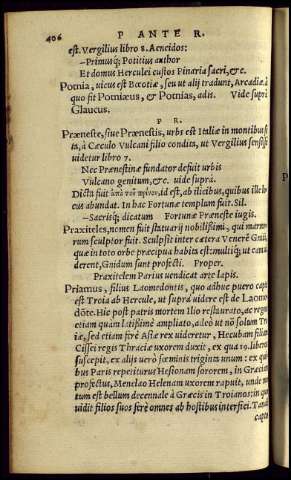 406 P ANTE R.
est. Vergilius libro 8. Aeneidos:
—Primusq; Potitius author
Et domus Herculei custos Pinaria sacri, &c.
Potnia, uicus est Bœotiæ, seu ut alij tradunt, Arcadiæ à
quo fit Potniæus, & Potnias, adis. Vide suprà
Glaucus.
P R.
Præneste, siue Prænestis, urbs est Italiæ in montibus
ta, à Cæculo Vulcani filio condita, ut Vergilius
uidetur libro 7.
Nec Prænestinæ fundator defuit urbis
Vulcano genitum, &c. uide supra.
Dicta fuit ἀπὸ τοῦ πρίνου, id est, ab ilicibus, quibus ille
cus abundat. In hac Fortunæ templum fuit. Sil.
—Sacrisq; dicatum Fortunæ Præneste iugis.
Praxiteles, nomen fuit statuarij nobilissimi, qui
rum sculptor fuit. Sculpsit inter cætera Venerē
quæ in toto orbe præcipua habita est: multiq; ut
derent, Gnidum sunt profecti. Proper.
Praxitelem Parius uendicat arte lapis.
Priamus, filius Laomedontis, quo adhuc puero capta
est Troia ab Hercule, ut supra uidere est de Laome
dōte. Hic post patris mortem Ilio restaurato, ac
etiam quam latißimè ampliato, adeò ut nō solùm Tro
iæ, sed etiam ferè Asiæ rex uideretur, Hecubam filiam
Cissei regis Thraciæ uxorem duxit, ex qua 19. liberos
suscepit, ex alijs uerò fœminis triginta unum: ex
bus Paris repetiturus Hesionam sororem, in Græciam
profectus, Menelao Helenam uxorem rapuit, unde
tum est bellum decennale à Græcis in Troianos: in quo
uidit filios suos ferè omnes ab hostibus interfici. Tandē
capta